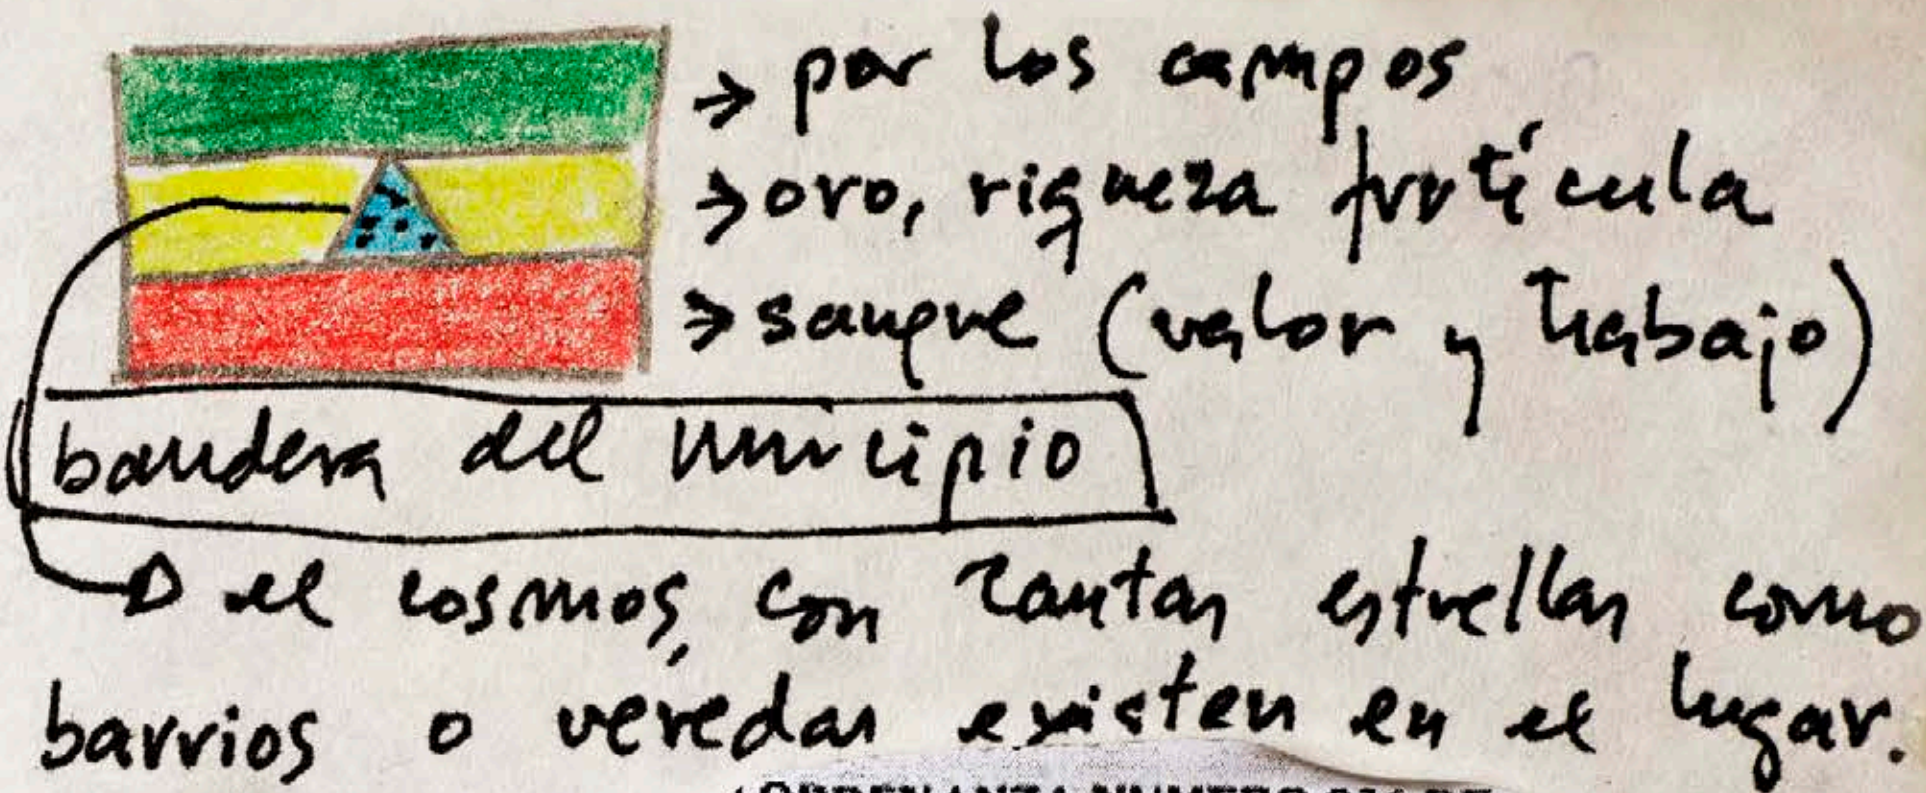 → por los campos
→ oro, riqueza frutícula
→ sangre (valor y trabajo)
bandera del municipio
→ el cosmos, con tantas estrellas como
barrios o veredas existen en el lugar.